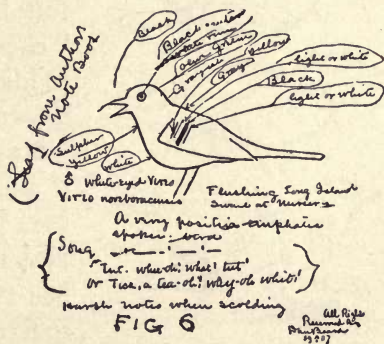 (Leaf from Author
Note Book
Black
Black outer
Olive green
Grayish
Gray
Yellow
light or white
Black
light or white
Sulpher
yellow
White
♂ White-eyed Vireo
Vireo noveboracensis
Flushing Long Island
A very positive emphatic
spoken bird
Song
Tut-whee-oh! what! tut!
Or Tick, a tea-oh! why-oh white!
Harsh notes when scolding
FIG 6
All Rights
Reserved
Dan Beard